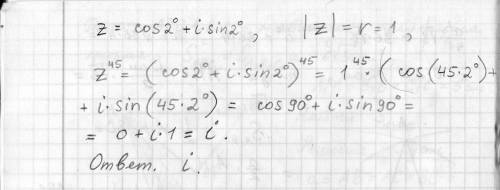 z = cos2° + i·sin2°, |z| = r = 1,
z⁴⁵ = (cos2° + i·sin2°)⁴⁵ = 1⁴⁵·(cos(45·2°)+
+ i·sin(45·2°) = cos90° + i·sin90° =
= 0 + i·1 = i.
Ответ. i.